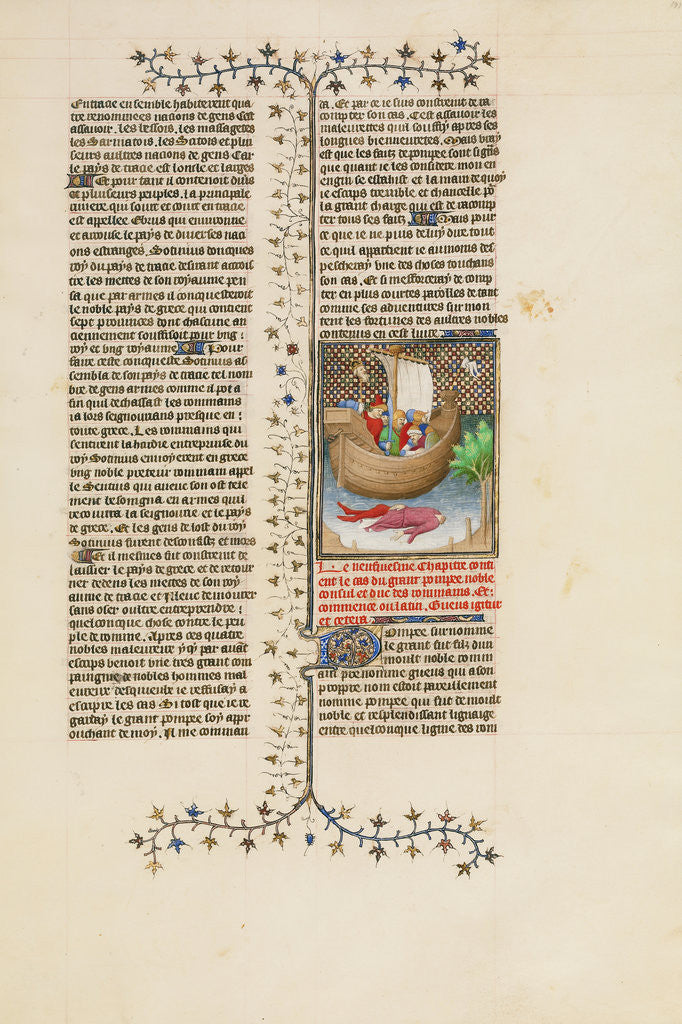 En trace en semble habiterent qua
tre renommees nacions de gens cest
assauoir. les bessois. les massagetes
les Sarmatois. les Scitois et plu
seurs aultres nacions de gens Car
le pays de trace est loncle et larges
Et pour tant il contenoit diuers
et pluiseurs peuples. la principale
riuiere qui sourt et court en trace
est appellee Ebrus qui enuironne
et arrouse le pays de diuerses naci
ons estranges. Sotimus doncques
roy du pays de trace desirant accrois
tre les mettes de son royaume pen
sa que par armes il conquesteroit
le noble pays de grece qui contient
sept prouinces dont chascune an
ciennement souffisoit pour ung
roy et ung royaume Pour
faire ceste conqueste Sotimus as
sembla de son pays de trace tel nom
bre de gens armes comme il pot a
fin quil dechassast les rommains
la lors seignourians presque en
toute grece. Les rommains qui
sentirent la hardie entreprinse du
roy Sotimus enuoyerent en grece
ung noble preteur rommain appel
le Sencius qui auecques son ost tele
ment besongna en armes quil
recouura la seignourie et le pays
de grece. Et les gens de lost du roy
Sotimus furent desconfiz et mors
Et il mesmes fut constreint de
laissier le pays de grece et de retour
ner dedens les mettes de son roy
aume de trace et illeuc demourer
sans oser oultre entreprendre
quelconque chose contre le peu
ple de romme. Apres ces quatre
nobles maleureux y qy par auant
escrips benoit vne tres grant com
paingnie de nobles hommes mal
eureux desquieulx ie reffusay a
escripre les cas Si tost que ie re
garday le grant pompee soy appr
ouchant de moy. Il me comman
ca. Et par ce ie suis constreint de ra
compter son cas. Cest assauoir les
maleurettes qui souffry apres ses
longues bieneurettes. Mais vray
est que les faitz de pompee sont si grans
que quant ie les considere mon en
engin se esbahist et la main de quoy
ie escrips tremble et chancelle pour
la grant charge qui est de racomp
ter tous ses faitz Mais pour
ce que ie ne puis de luy dire tout
ce quil appartient ie au moins des
pescheray vne des choses touchans
son cas. Et si mefforceray de comp
ter en plus courtes parolles de tant
comme ses aduentures surmon
tent les fortunes des aultres nobles
contenus en cest liure
Le neufuiesme Chapitre conti
ent le cas du grant pompee noble
consul et duc des rommains. Et
commence ou latin. Gneus igitur
et cetera
Pompee surnomme
le grant fut filz dun
moult noble romm
ain prenomme gneus qui a son
propre nom estoit pareillement
nomme pompee qui fut de moult
noble et resplendissant lignaige
entre quelconque ligne des rom